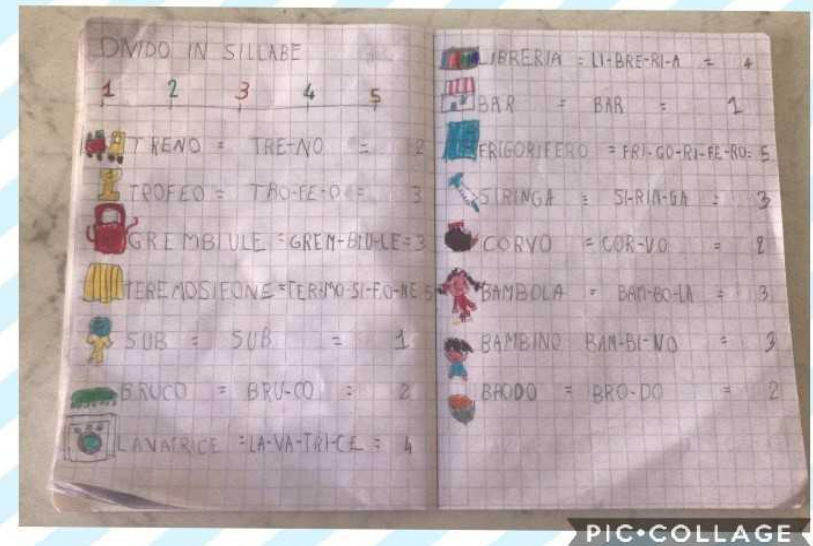 DIVIDO IN SILLABE
1 2 3 4 5
TRENO = TRE-NO = 2
TROFEO = TRO-FE-O = 3
GREMBIULE = GREM-BIU-LE = 3
TEREMOSIFONE = TER-MO-SI-FO-NE 5
SUB = SUB = 1
BRUCO = BRU-CO = 2
LAVATRICE = LA-VA-TRI-CE = 4
LIBRERIA = LI-BRE-RI-A = 4
BAR = BAR = 1
FRIGORIFERO = FRI-GO-RI-FE-RO = 5
SIRINGA = SI-RIN-GA = 3
CORVO = COR-VO = 2
BAMBOLA = BAM-BO-LA = 3
BAMBINO BAM-BI-NO = 3
BRODO = BRO-DO = 2
PIC•COLLAGE